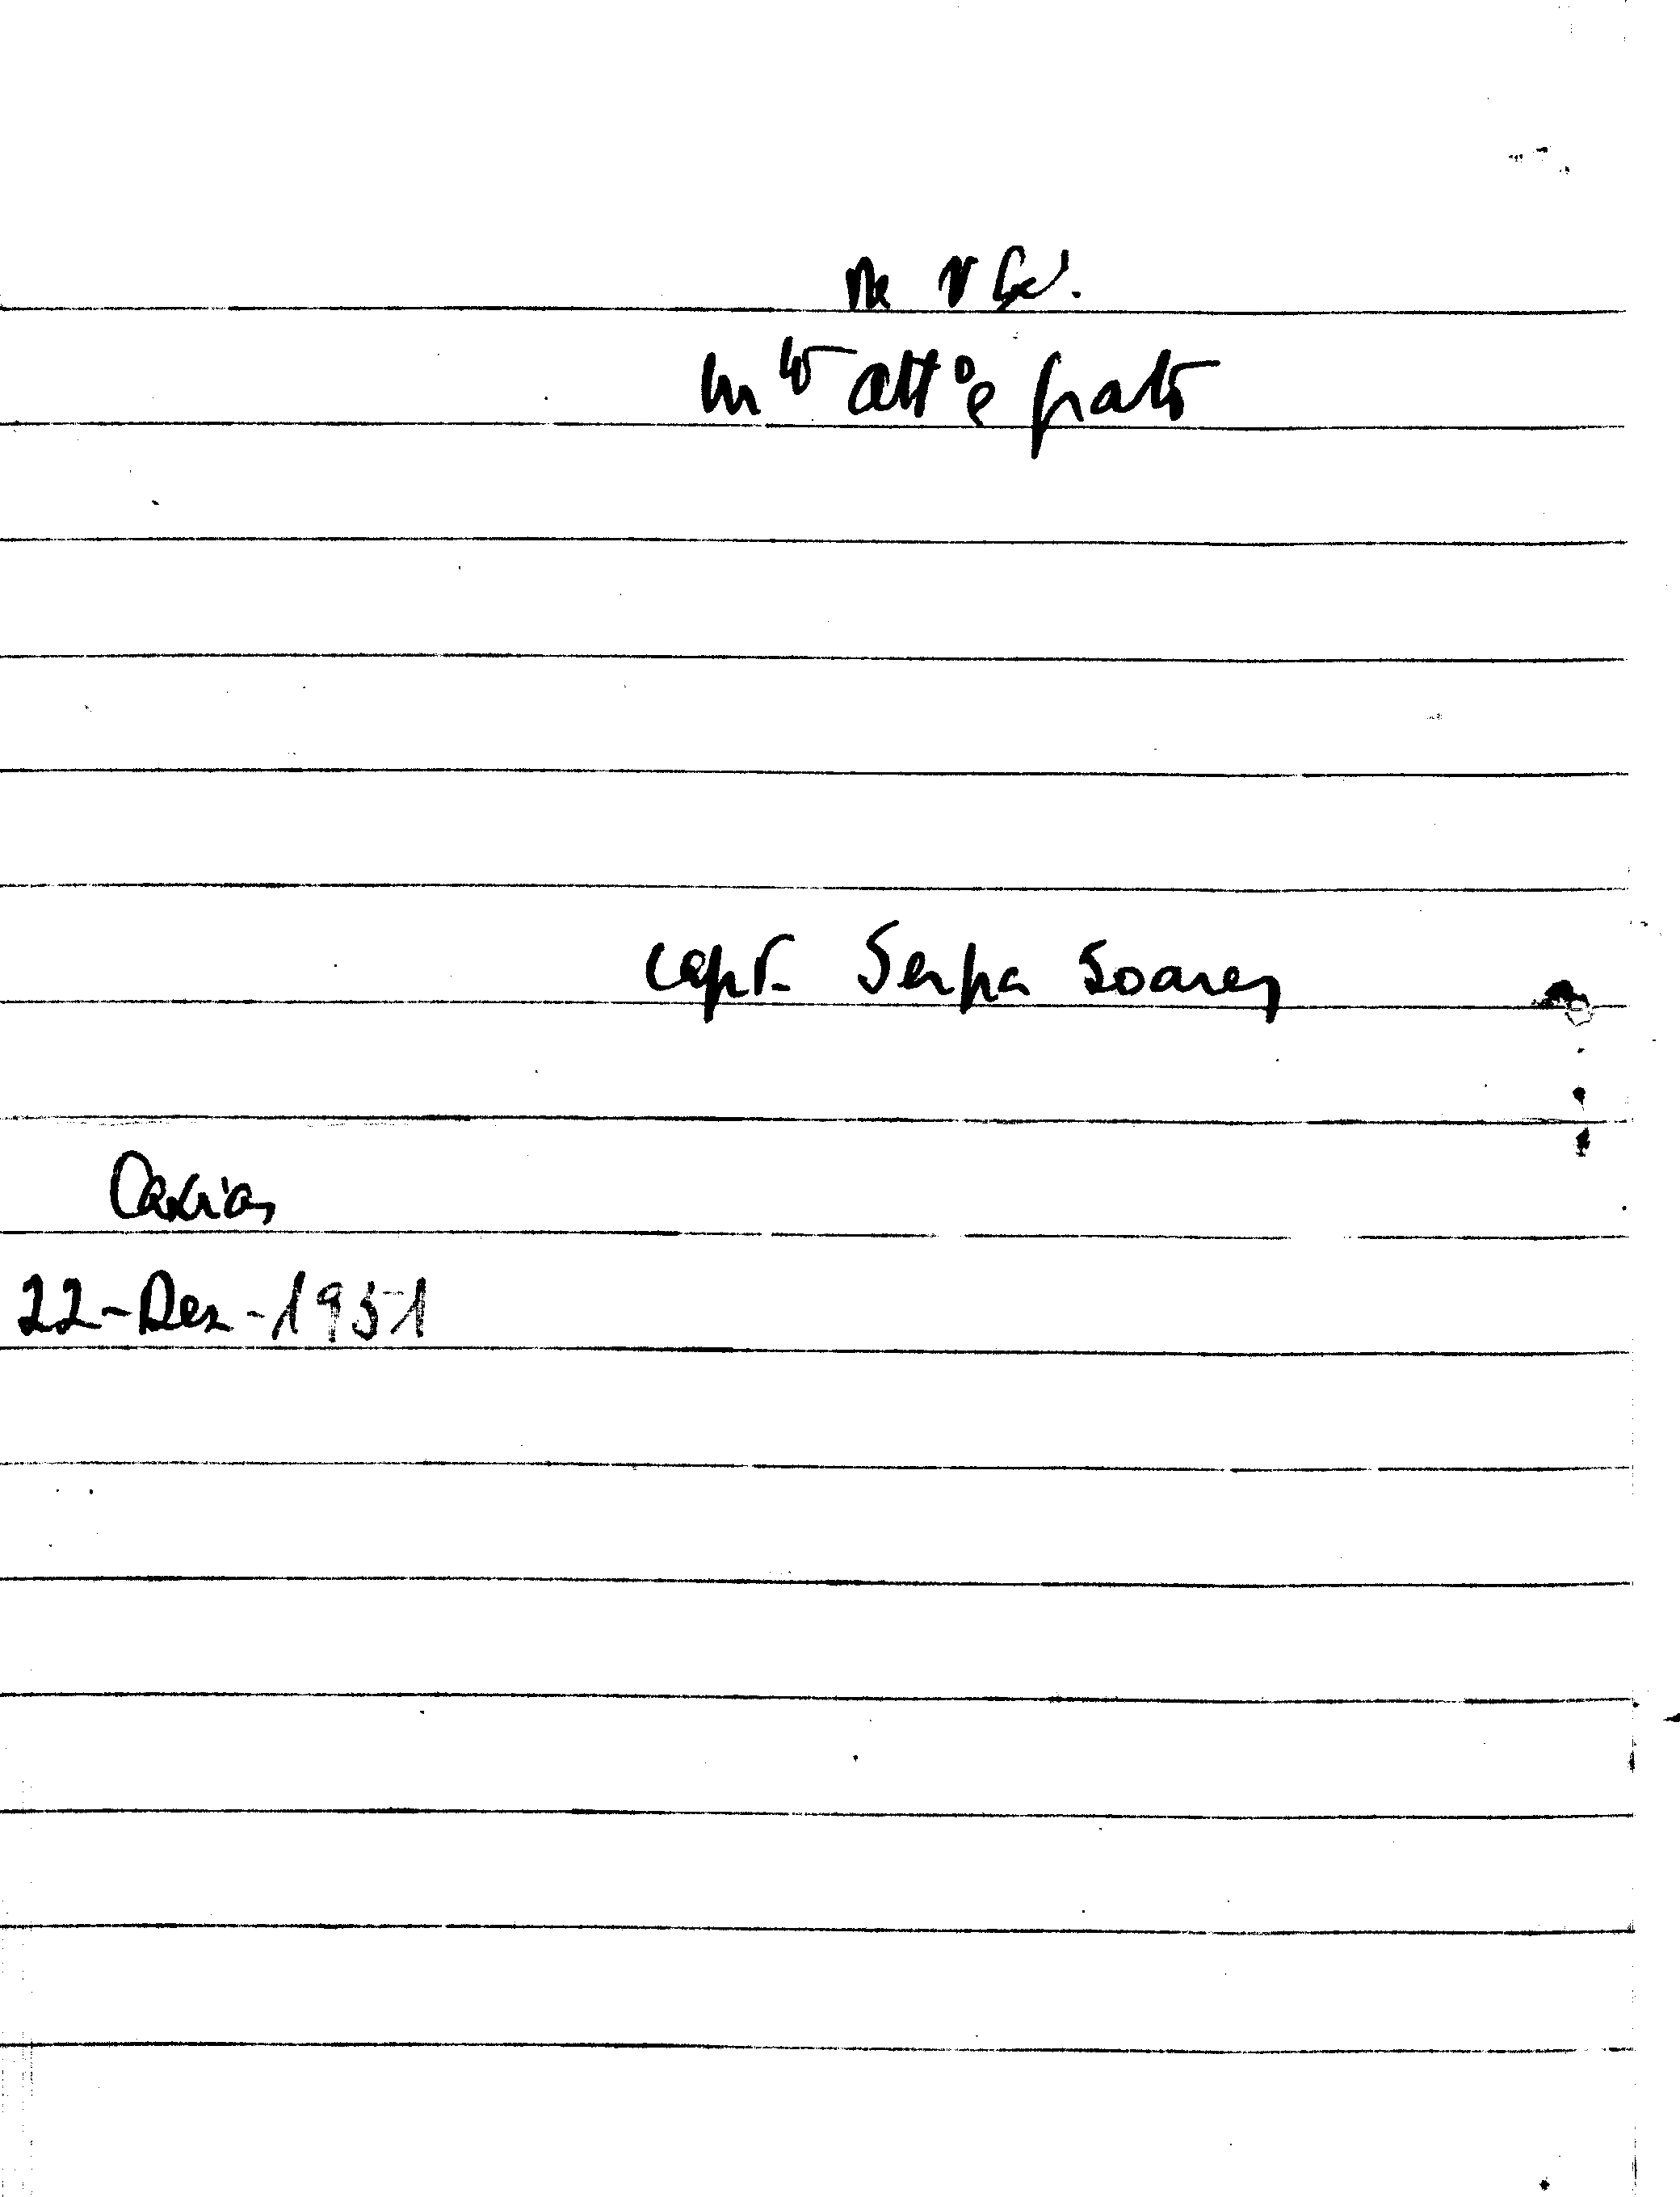 De V Ex.ª
mto attº e grato
Capt. Serpa Soares
Caxias
22-Dez-1951